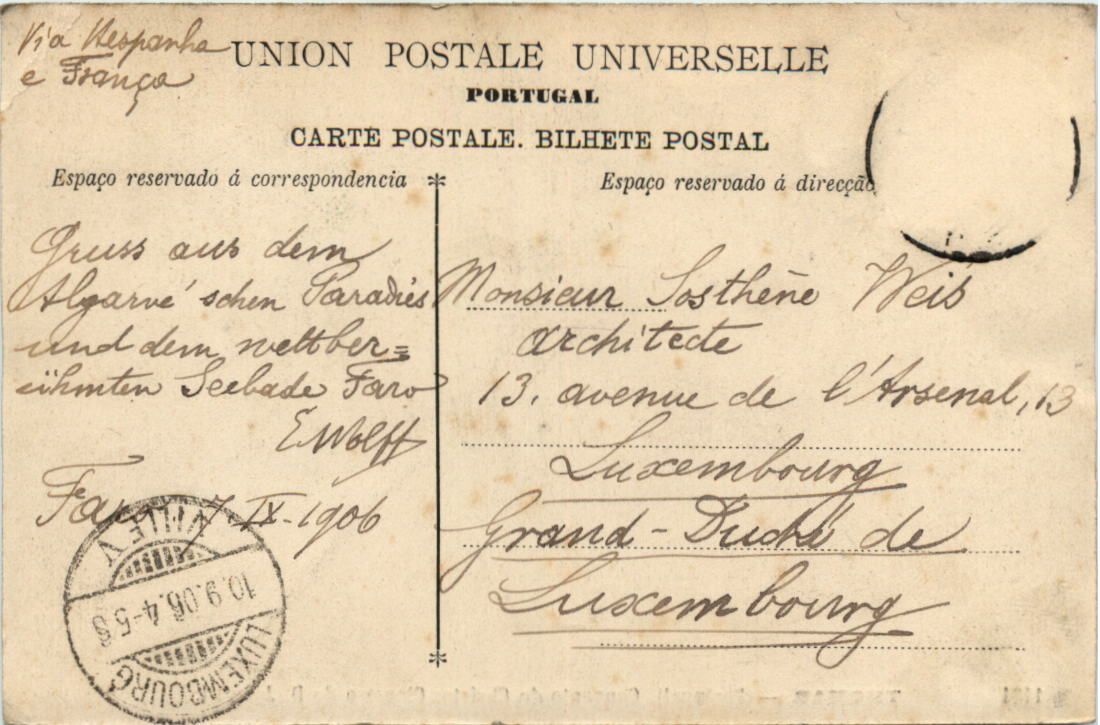 Via Hespanha
e França
UNION POSTALE UNIVERSELLE
PORTUGAL
CARTE POSTALE. BILHETE POSTAL
Espaço reservado á correspondencia
Espaço reservado á direcção
Gruss aus dem
Algarve'schen Paradies
und dem weltber=
ühmten Seebade Faro
E Wolff
Faro 7 IX-1906
Monsieur Sosthène Weis
architecte
13. avenue de l'Arsenal, 13
Luxembourg
Grand-Duché de
Luxembourg
VILLE V
10.9.06.4-5 S
LUXEMBOURG